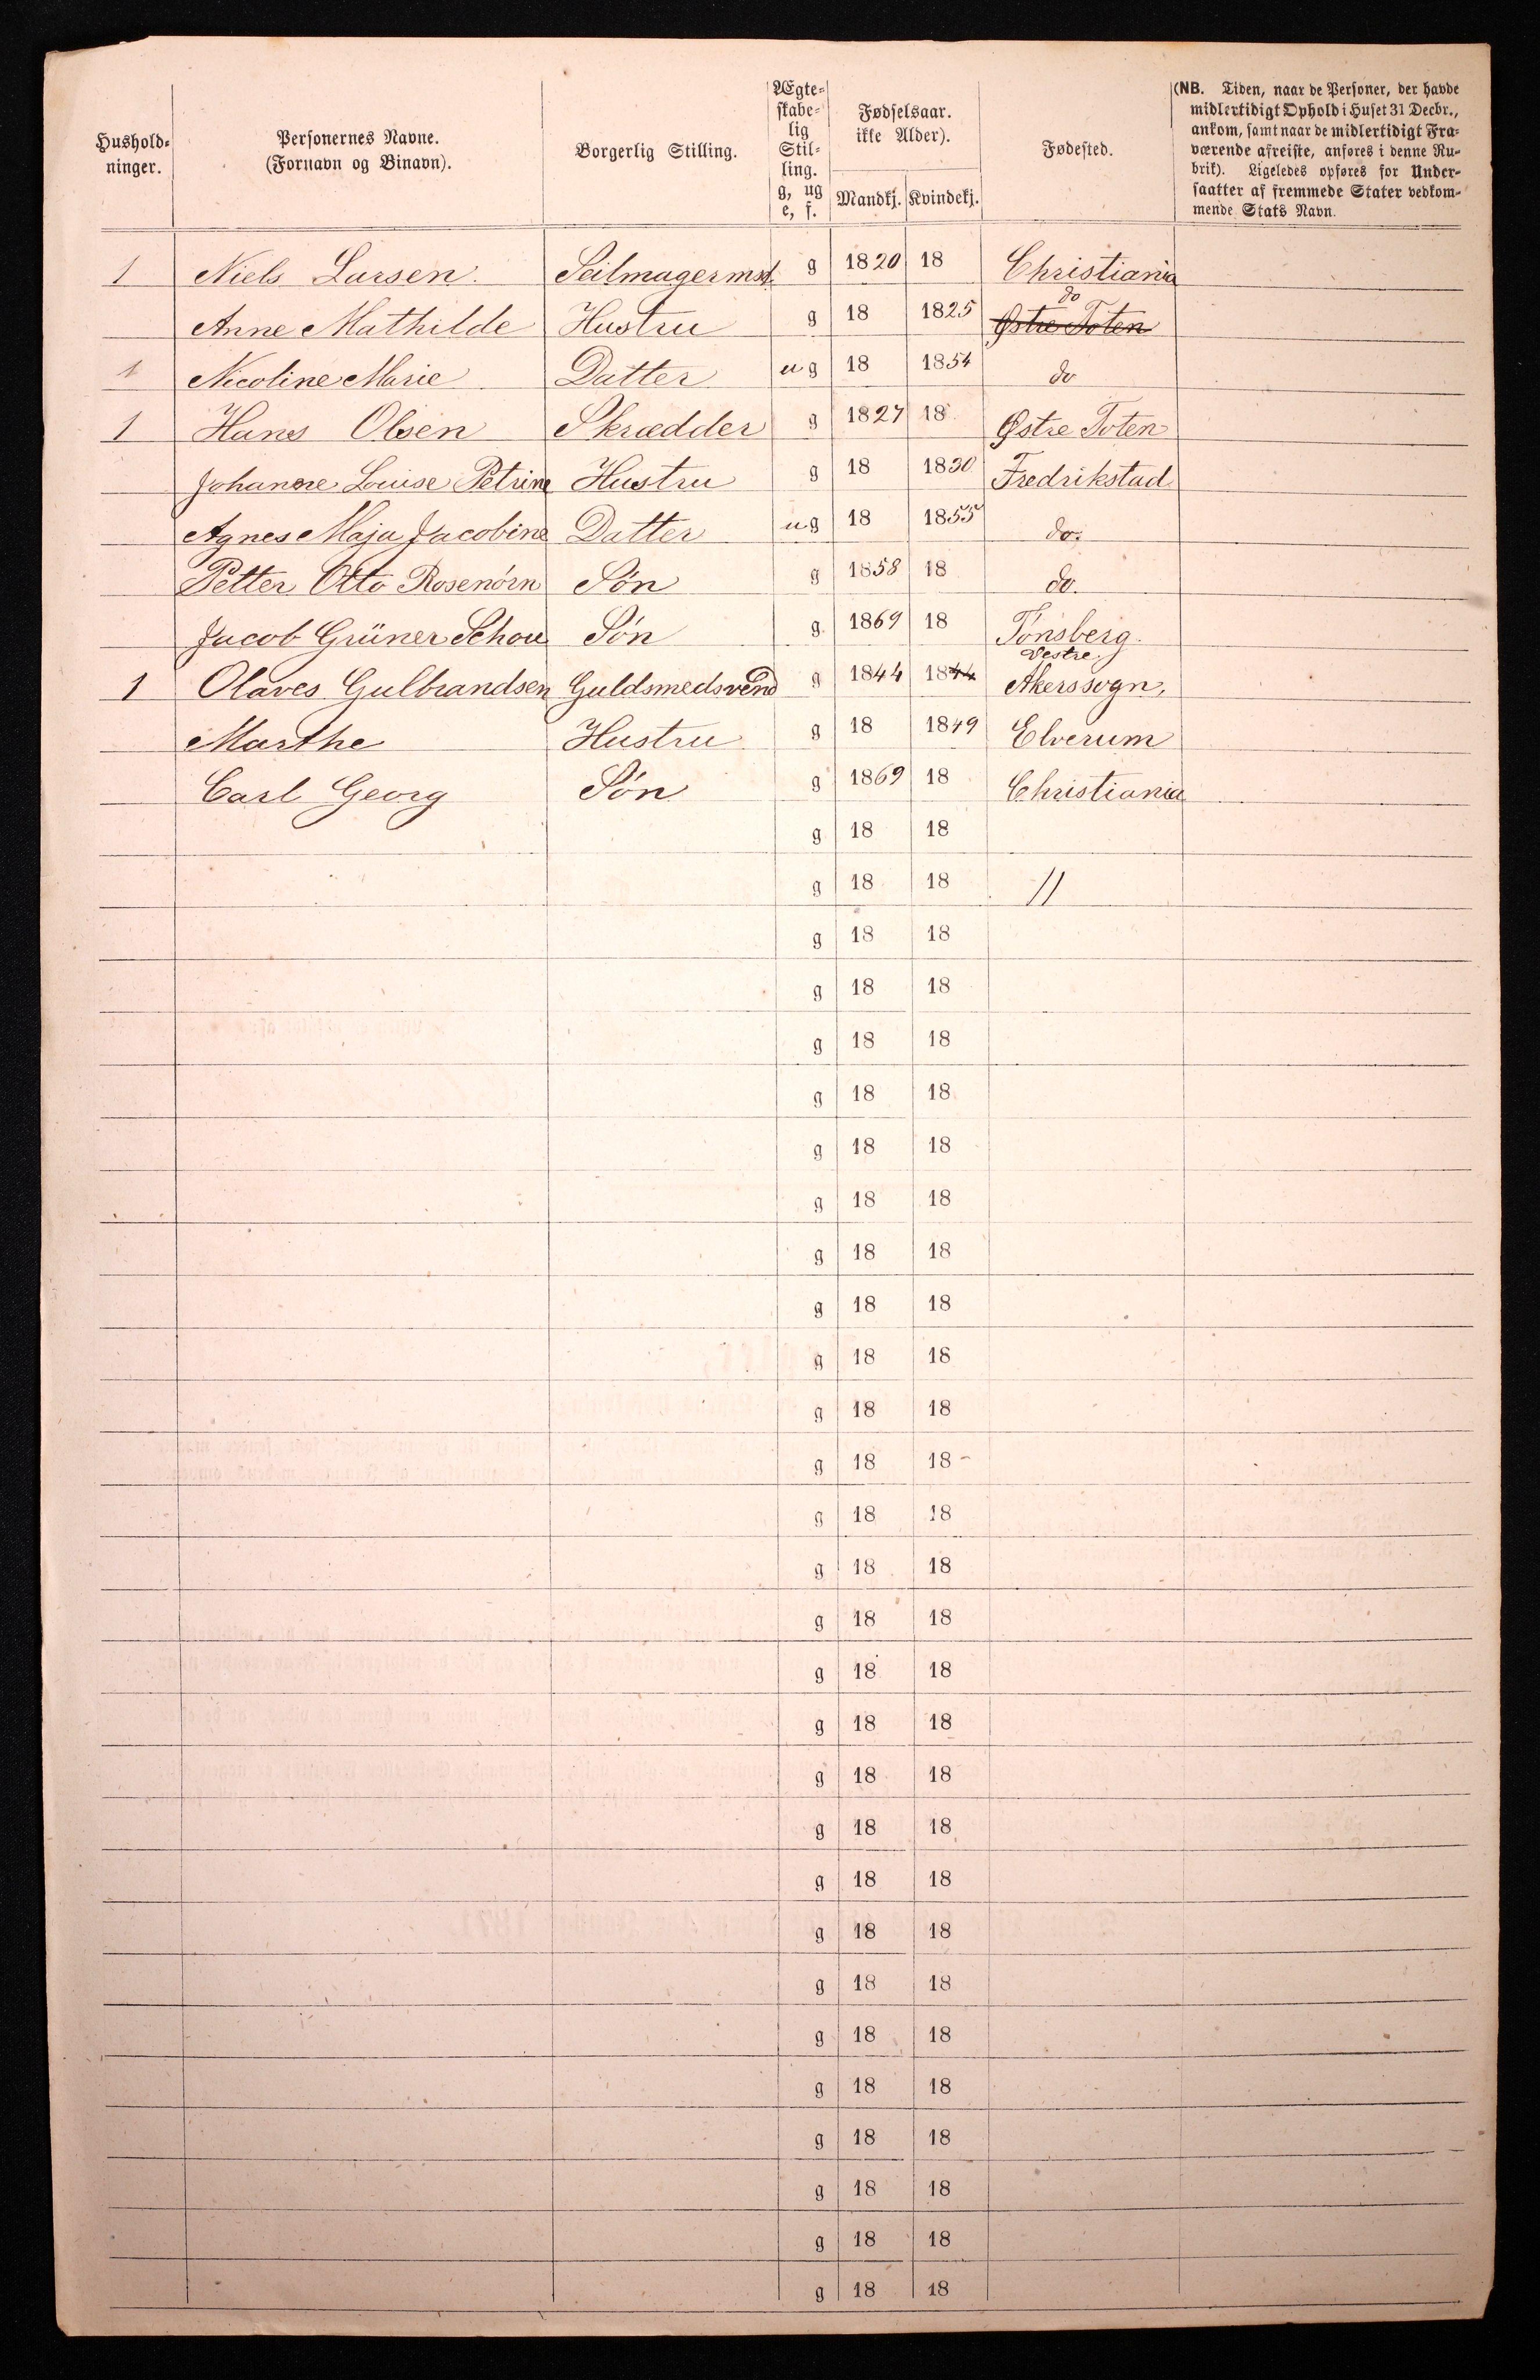 Hushold-
ninger.
Personernes Navne.
(Fornavn og Binavn).
Borgerlig Stilling.
Ægte-
skabe-
lig
Stil-
ling.
g, ug
e, f.
Fødselsaar.
ikke Alder).
Mandkj. Kvindekj.
Fødested.
(NB. Tiden, naar de Personer, der havde
midlertidigt Ophold i Huset 31 Decbr.,
ankom, samt naar de midlertidigt Fra-
værende afreiste, anføres i denne Ru-
brik). Ligeledes opføres for Under-
saatter af fremmede Stater vedkom-
mende Stats Navn.
1 Niels Larsen. Seilmagermst. g 1820 18 Christiania
do
Anne Mathilde Hustru g 18 1825 Østre Toten
1 Nicoline Marie Datter ug 18 1854 do
1 Hans Olsen Skrædder g 1827 18 Østre Toten
Johanne Louise Petrine Hustru g 18 1830 Fredrikstad
Agnes Maja Jacobine Datter ug 18 1855 do.
Petter Otto Rosenörn Sön g 1858 18 do.
Jacob Grüner Schou Sön g 1869 18 Tönsberg.
Vestre
1 Olaves Gulbrandsen Guldsmedsvend g 1844 1844 Akerssogn,
Marthe Hustru g 18 1849 Elverum
Carl Georg Sön g 1869 18 Christiania
g 18 18
g 18 18 //
g 18 18
g 18 18
g 18 18
g 18 18
g 18 18
g 18 18
g 18 18
g 18 18
g 18 18
g 18 18
g 18 18
g 18 18
g 18 18
g 18 18
g 18 18
g 18 18
g 18 18
g 18 18
g 18 18
g 18 18
g 18 18
g 18 18
g 18 18
g 18 18
g 18 18
g 18 18
g 18 18